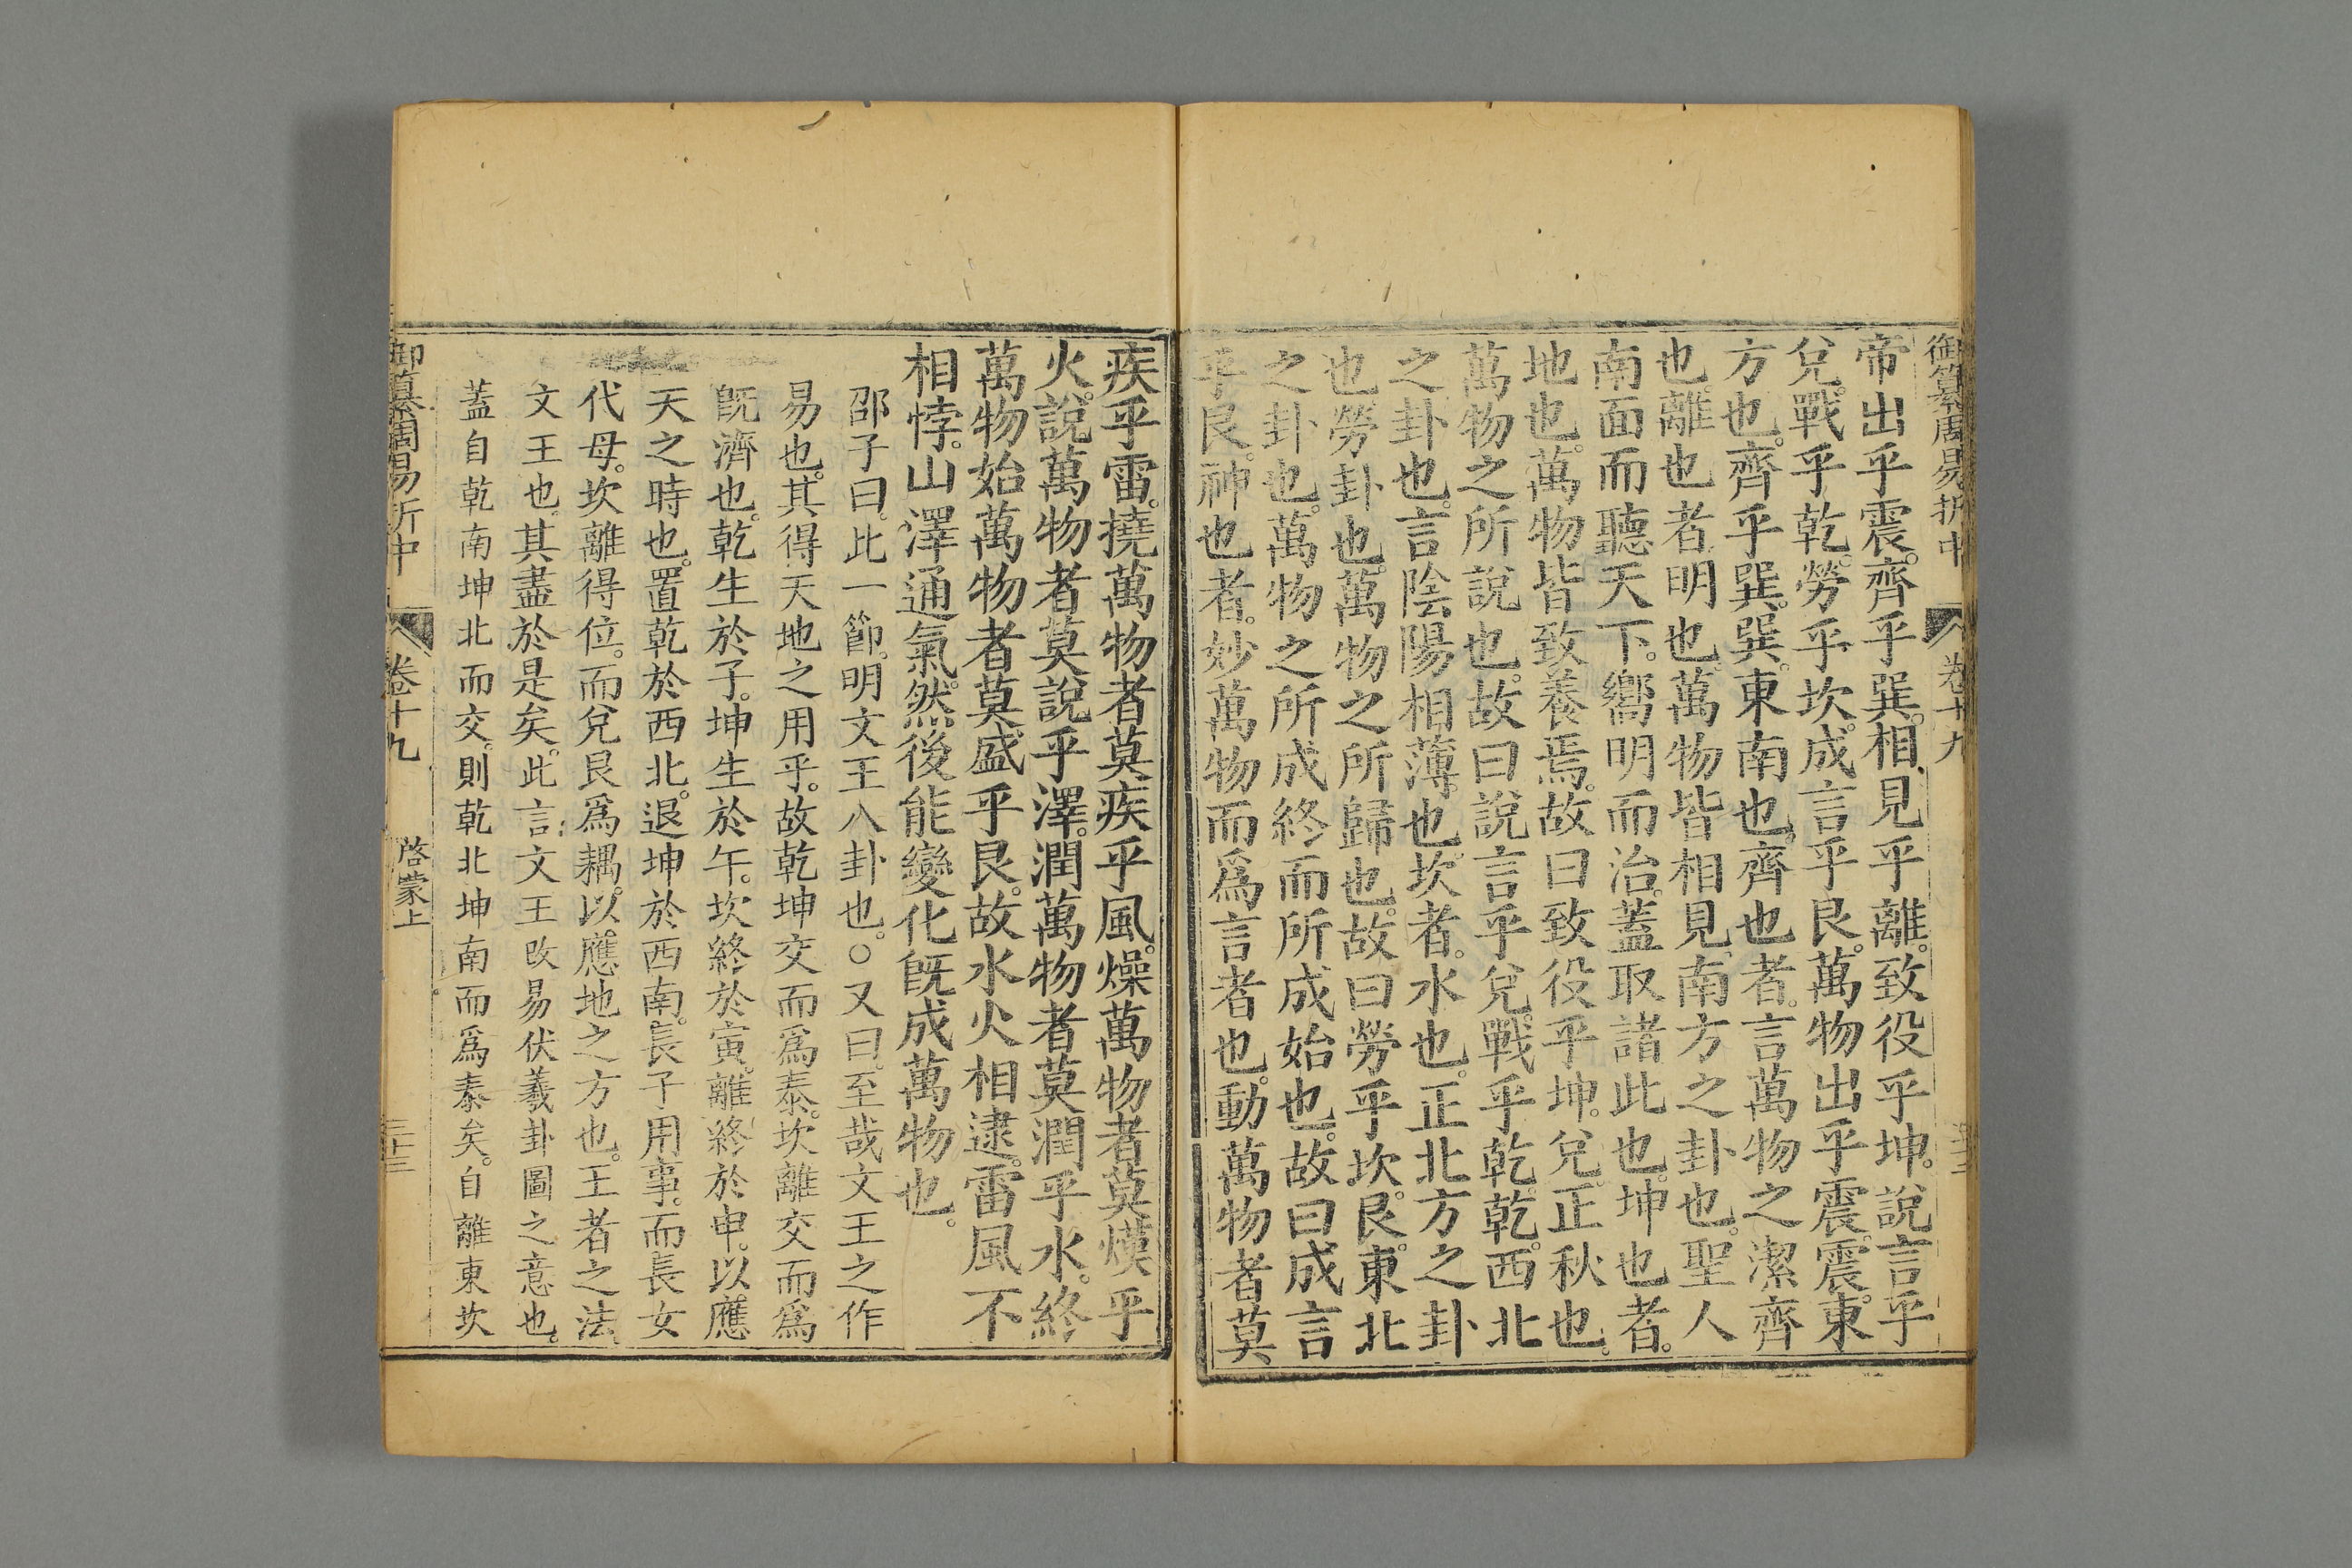 御纂周易折中 卷十九
帝出乎震。齊乎巽。相見乎離。致役乎坤。說言乎
兌。戰乎乾。勞乎坎。成言乎艮。萬物出乎震。震。東
方也。齊乎巽。巽。東南也。齊也者。言萬物之潔齊
也。離也者。明也。萬物皆相見。南方之卦也。聖人
南面而聽天下。嚮明而治。蓋取諸此也。坤也者。
地也。萬物皆致養焉。故曰致役乎坤。兌。正秋也。
萬物之所說也。故曰說言乎兌。戰乎乾。乾。西北
之卦也。言陰陽相薄也。坎者。水也。正北方之卦
也。勞卦也。萬物之所歸也。故曰勞乎坎。艮。東北
之卦也。萬物之所成終而所成始也。故曰成言
乎艮。神也者。妙萬物而爲言者也。動萬物者莫
疾乎雷。撓萬物者莫疾乎風。燥萬物者莫熯乎
火。說萬物者莫說乎澤。潤萬物者莫潤乎水。終
萬物始萬物者莫盛乎艮。故水火相逮。雷風不
相悖。山澤通氣。然後能變化旣成萬物也。
邵子曰。此一節。明文王八卦也。○又曰。至哉文王之作
易也。其得天地之用乎。故乾坤交而爲泰。坎離交而爲
旣濟也。乾生於子。坤生於午。坎終於寅。離終於申。以應
天之時也。置乾於西北。退坤於西南。長子用事。而長女
代母。坎離得位。而兌艮爲耦。以應地之方也。王者之法
文王也。其盡於是矣。此言文王改易伏羲卦圖之意也。
蓋自乾南坤北而交。則乾北坤南而爲泰矣。自離東坎
御纂周易折中 卷十九 啓蒙上 三十三